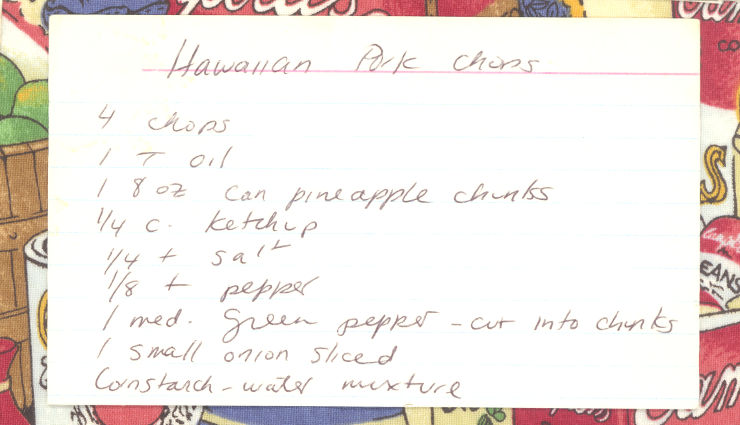 Hawaiian Pork Chops
4 chops
1 T oil
1 8 oz can pineapple chunks
1/4 c. ketchup
1/4 t salt
1/8 t pepper
1 med. green pepper - cut into chunks
1 small onion sliced
Cornstarch - water mixture
EANS